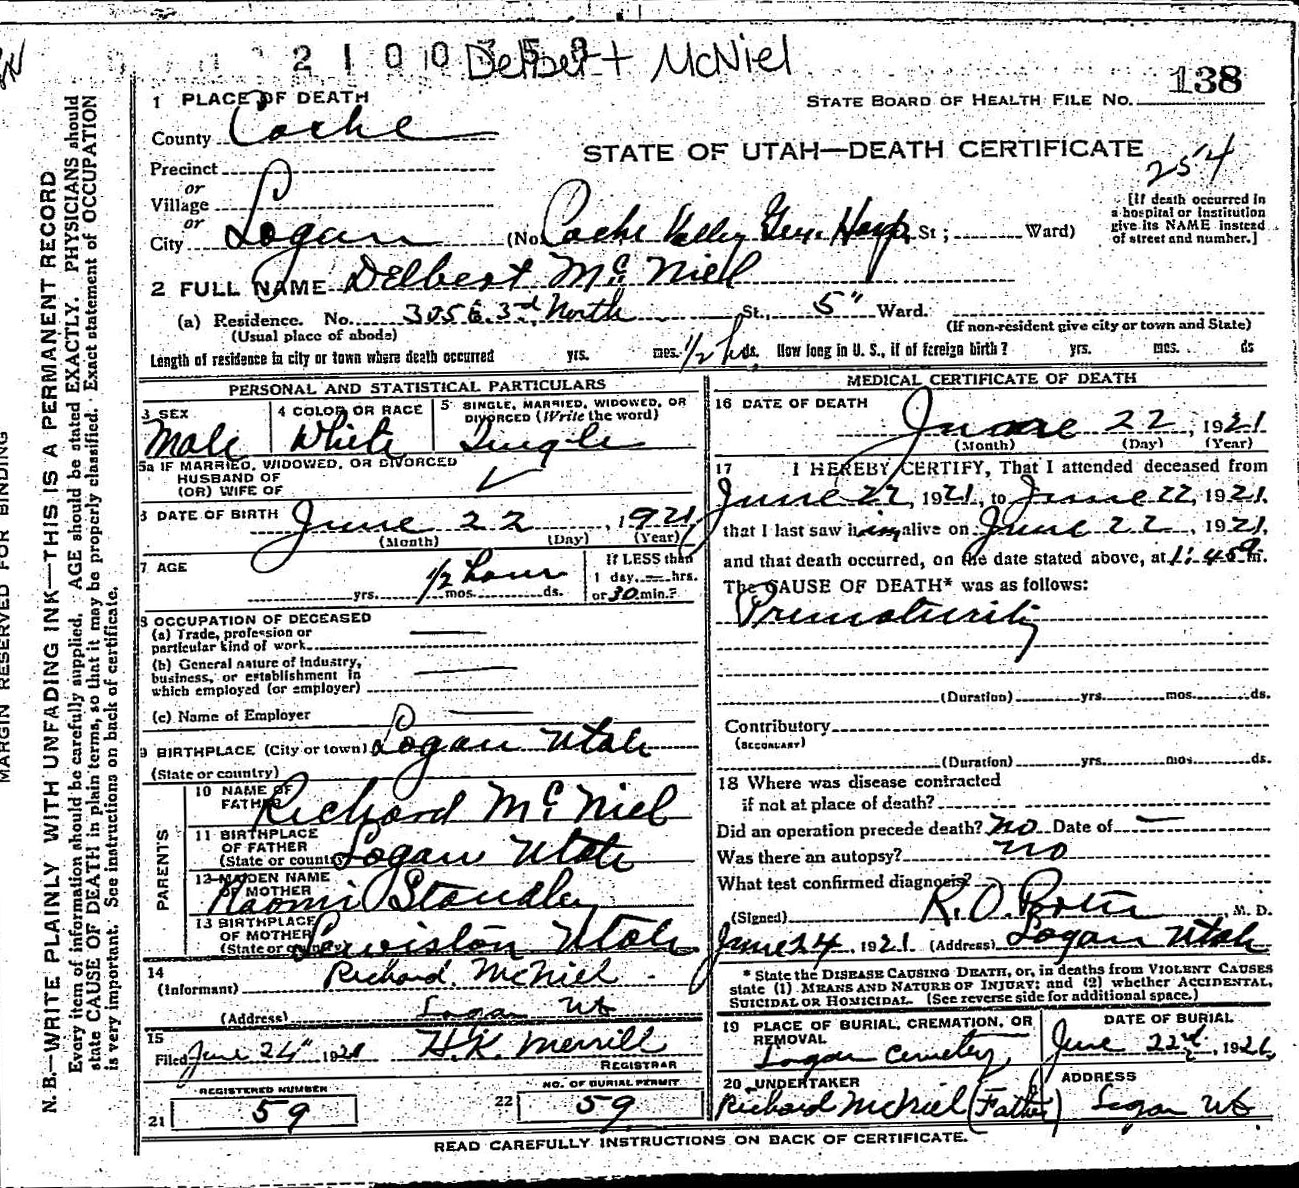 2100353
Delbert McNiel
138
STATE BOARD OF HEALTH FILE No.
1 PLACE OF DEATH
County Cache
STATE OF UTAH—DEATH CERTIFICATE
254
Precinct
or
Village
or
City Logan (No. Cache Valley Gen. Hosp. St; Ward)
[If death occurred in
a hospital or institution
give its NAME instead
of street and number.]
2 FULL NAME Delbert McNiel
(a) Residence. No. 305 E. 3rd North St., 5" Ward.
(Usual place of abode)
(If non-resident give city or town and State)
Length of residence in city or town where death occurred yrs. mos. 1/2 hr ds. How long in U. S., if of foreign birth? yrs. mos. ds
PERSONAL AND STATISTICAL PARTICULARS
3 SEX
Male
4 COLOR OR RACE
White
5 SINGLE, MARRIED, WIDOWED, OR
DIVORCED (Write the word)
Single
5a IF MARRIED, WIDOWED, OR DIVORCED
HUSBAND OF
(OR) WIFE OF
6 DATE OF BIRTH June 22, 1921
(Month) (Day) (Year)
7 AGE
yrs. 1/2 hour mos. ds.
If LESS than
1 day,—hrs.
or 30 min.?
8 OCCUPATION OF DECEASED
(a) Trade, profession or
particular kind of work
(b) General nature of Industry,
business, or establishment in
which employed (or employer)
(c) Name of Employer
9 BIRTHPLACE (City or town) Logan Utah
(State or country)
PARENTS
10 NAME OF
FATHER Richard McNiel
11 BIRTHPLACE
OF FATHER
(State or country) Logan Utah
12 MAIDEN NAME
OF MOTHER Naomi Standley
13 BIRTHPLACE
OF MOTHER
(State or country) Lewiston Utah
14
(Informant) Richard McNiel
(Address) Logan Ut
15
Filed June 24" 1921 H.K. Merrill
REGISTRAR
REGISTERED NUMBER
21 59
NO. OF BURIAL PERMIT
22 59
MEDICAL CERTIFICATE OF DEATH
16 DATE OF DEATH
June 22, 1921
(Month) (Day) (Year)
17 I HEREBY CERTIFY, That I attended deceased from
June 22, 1921, to June 22, 1921.
that I last saw him alive on June 22, 1921,
and that death occurred, on the date stated above, at 1:45 m.
The CAUSE OF DEATH* was as follows:
Prematurity
(Duration) yrs. mos. ds.
Contributory
(SECONDARY)
(Duration) yrs. mos. ds.
18 Where was disease contracted
if not at place of death?
Did an operation precede death? No Date of —
Was there an autopsy? No
What test confirmed diagnosis?
(Signed) R. O. Porter M. D.
June 24, 1921 (Address) Logan Utah
* State the DISEASE CAUSING DEATH, or, in deaths from VIOLENT CAUSES
state (1) MEANS AND NATURE OF INJURY; and (2) whether ACCIDENTAL,
SUICIDAL OR HOMICIDAL. (See reverse side for additional space.)
19 PLACE OF BURIAL, CREMATION, OR
REMOVAL
Logan Cemetery
DATE OF BURIAL
June 22nd, 1921
20 UNDERTAKER
Richard McNiel (Father)
ADDRESS
Logan Ut
READ CAREFULLY INSTRUCTIONS ON BACK OF CERTIFICATE.
MARGIN RESERVED FOR BINDING
N. B.—WRITE PLAINLY WITH UNFADING INK—THIS IS A PERMANENT RECORD
Every item of information should be carefully supplied. AGE should be stated EXACTLY. PHYSICIANS should
state CAUSE OF DEATH in plain terms, so that it may be properly classified. Exact statement of OCCUPATION
is very important. See instructions on back of certificate.